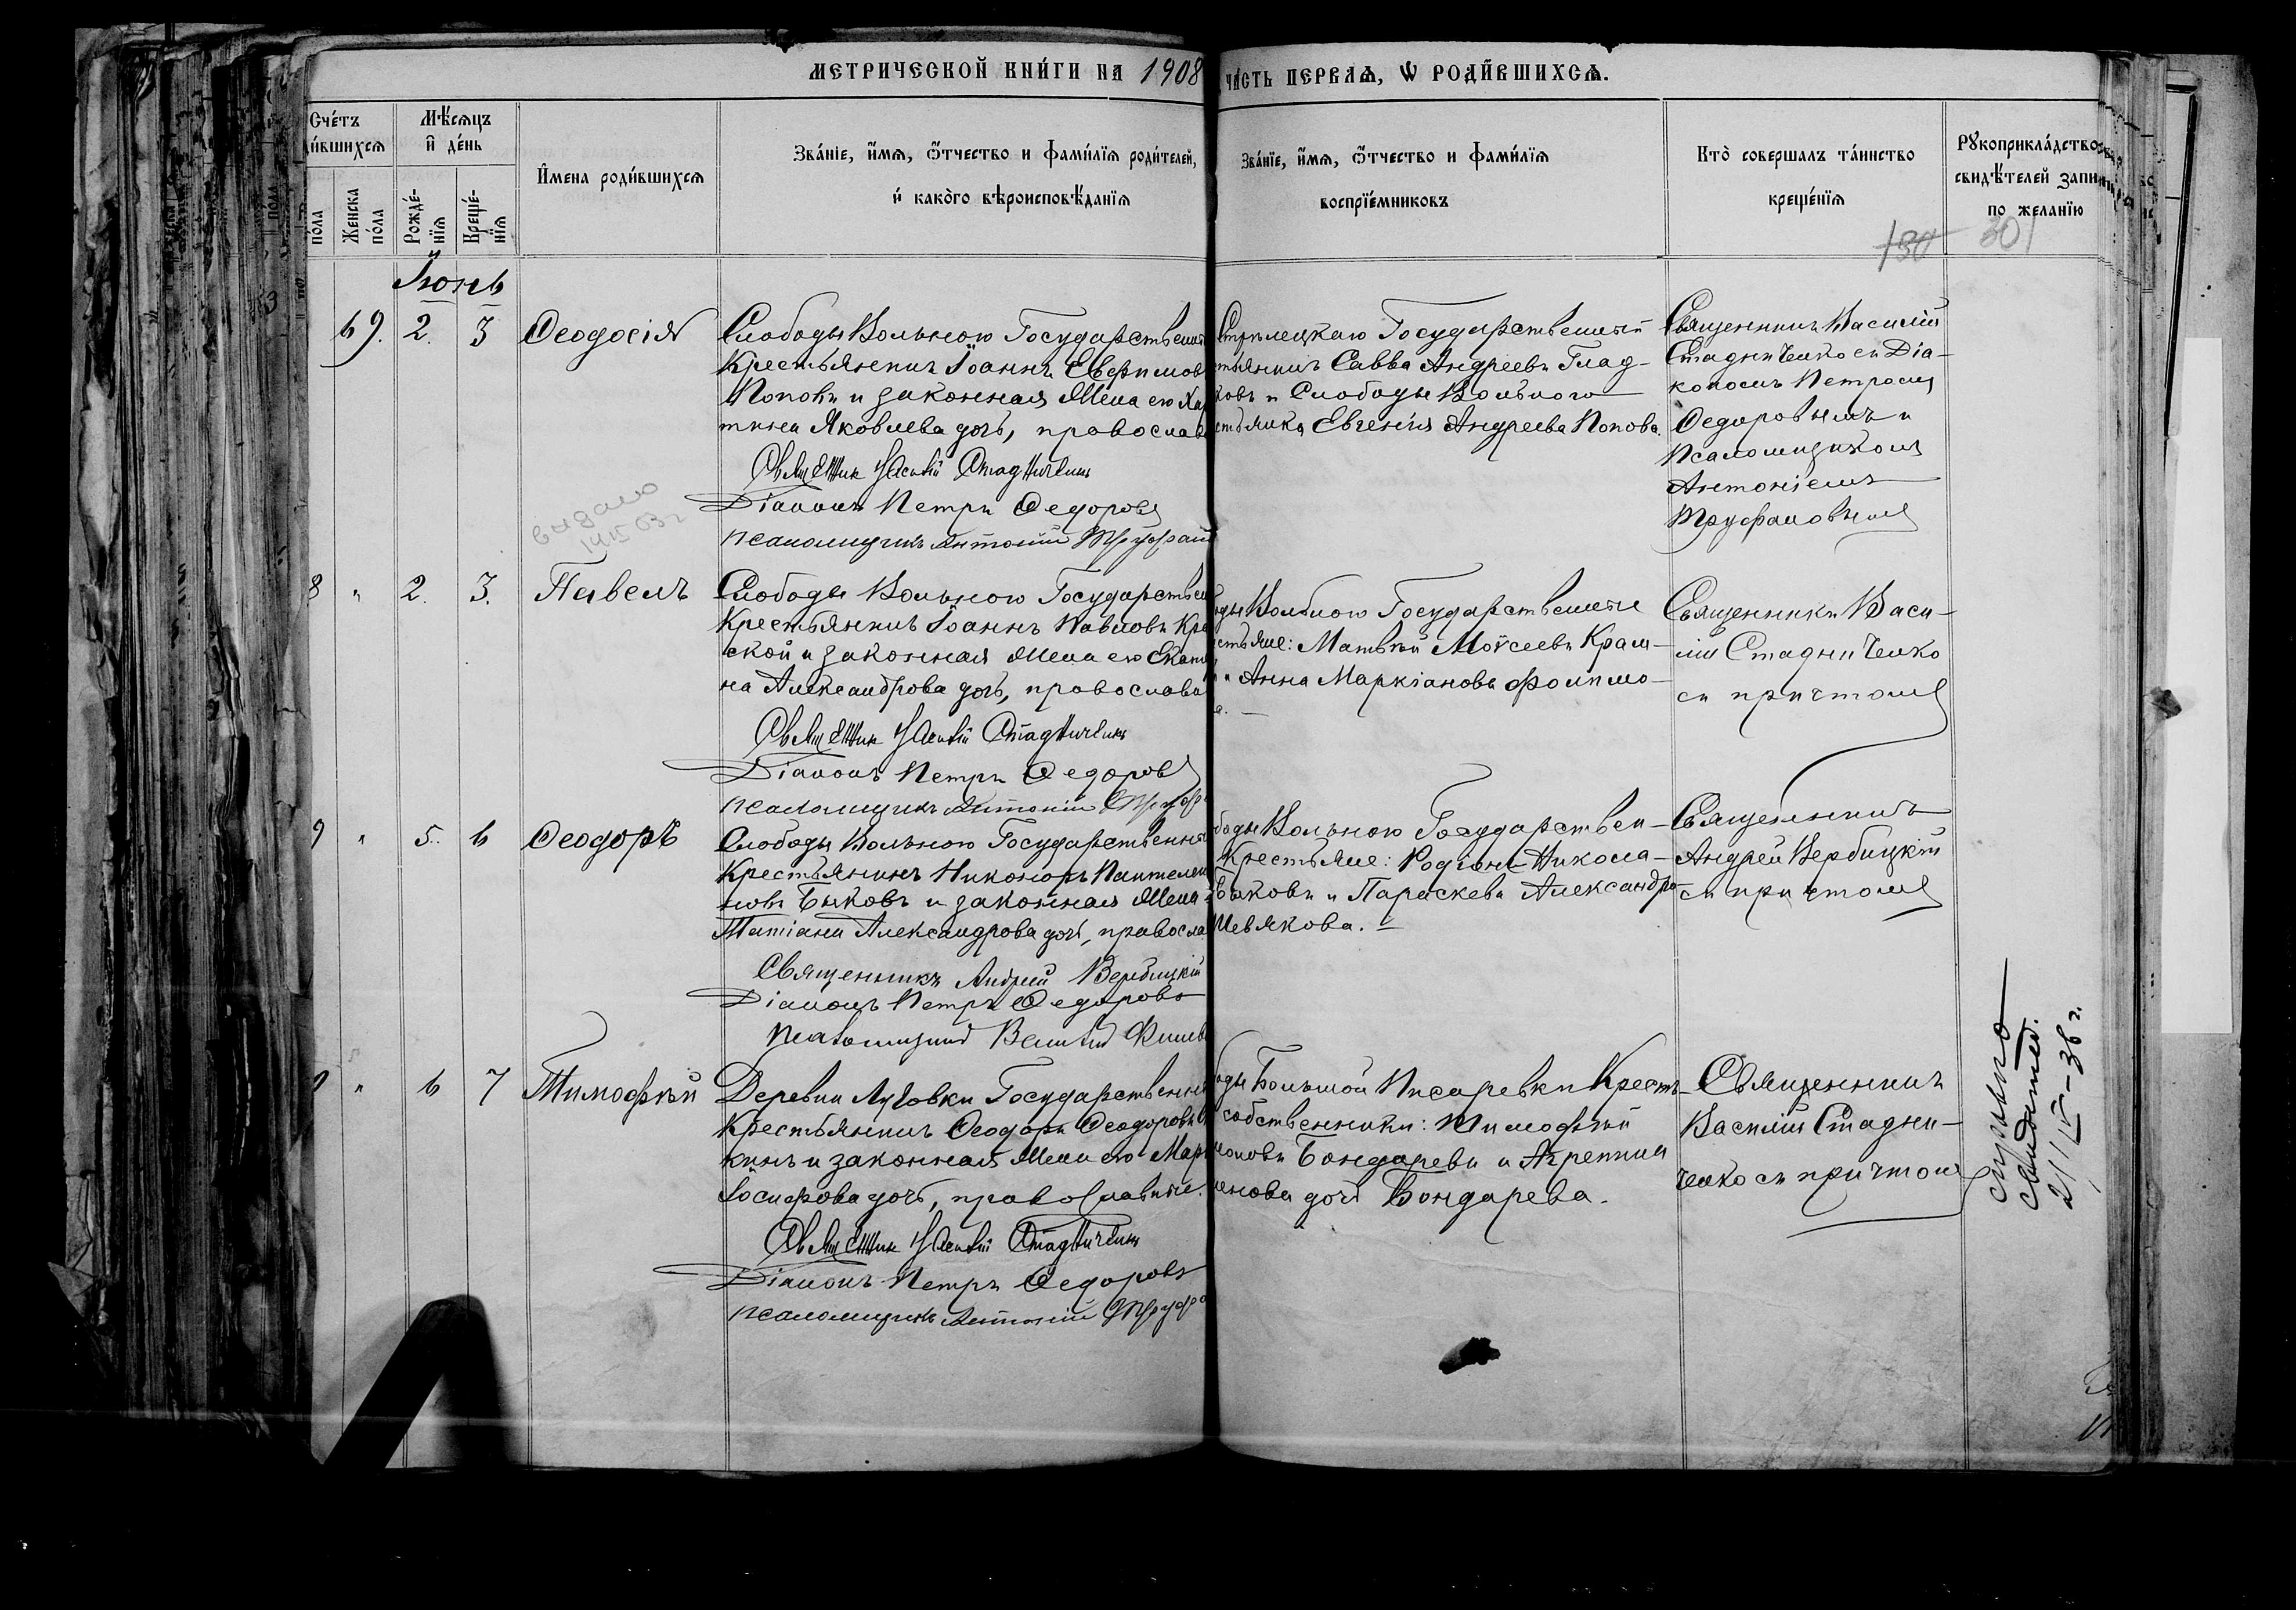 МЕТРИЧЕСКОЙ КНИ́ГИ НА 1908
ЧА́СТЬ ПЕРВАѦ, Ѡ РОДИ́ВШИХСѦ.
Сче́тъ
ди́вшихсѧ
по́ла
Женска по́ла
Мѣ́сѧцъ и҆ де́нь
Рожде́-нїѧ
Креще́-нїѧ
И҆мена роди́вшихсѧ
Зва́нїе, и҆́мѧ, ѻ҆́тчество и фами́лїѧ роди́телей,
и҆ како́го вѣроисповѣ́данїѧ
Зва́нїе, и҆́мѧ, ѻ҆́тчество и фами́лїѧ
воспрїе́мниковъ
Кто̀ совершалъ та́инство
креще́нїѧ
Рꙋкоприкла́дство
свидѣ́телей запи
по жела́нїю
130 301
Іюнь
69. 2. 3 Ѳеодосія
Слободы Вольного Государственный
Крестьянинъ Іоаннъ Евфимовъ
Поповъ и законная жена его Хар
тина Яковлева дочь, православ
Священник Василій Стадниченко
Діаконъ Петръ Ѳедоровъ
псаломщикъ Антоній Труфан
Стрѣлецкаго Государственный
стьянинъ Савва Андреевъ Глад-
ковъ и Слободы Вольного
стьянка Евгенія Андреева Попова.
Священникъ Василій
Стадниченко съ Діа-
кономъ Петромъ
Ѳедоровымъ и
Псаломщикомъ
Антоніемъ
Труфановымъ
выдано
8 " 2. 3. Павелъ
Слободы Вольного Государствен
Крестьянинъ Іоаннъ Павловъ Кра
ской и законная жена его Екате
на Александрова дочь, православ
Священник Василій Стадниченко
Діаконъ Петръ Ѳедоровъ
псаломщикъ Антоній Труф
оды Вольного Государственные
стьяне: Матвѣй Моѵсеевъ Крам-
и Анна Маркіанова Филимо-
а. —
Священникъ Васи-
лій Стадниченко
съ причтомъ
9 " 5. 6 Ѳеодоръ
Слободы Вольного Государственный
Крестьянинъ Никоноръ Пантелеи
новъ Быковъ и законная жена
Татіана Александрова дочь, правосла
Священникъ Андрей Вербицкій
Діаконъ Петръ Ѳедоровъ
Псаломщикъ
боды Вольного Государствен-
Крестьяне: Родіонъ Никола-
Быковъ и Параскева Александро-
Шевякова. —
Священникъ
Андрей Вербицкій
съ причтомъ
" 6 7 Тимоѳей
Деревни Луговки Государственный
Крестьянинъ Ѳеодоръ Ѳеодоровъ
кинъ и законная жена его Мар
Іосифова дочь, православные.
Священник Василій Стадниченко
Діаконъ Петръ Ѳедоровъ
псаломщикъ Антоній Труфо
оды Большой Писаревки Крестъ-
собственники: Тимоѳей
Бондаревъ и Агрипина
енова дочь Бондарева.
Священникъ
Василій Стадни-
ченко съ причтомъ